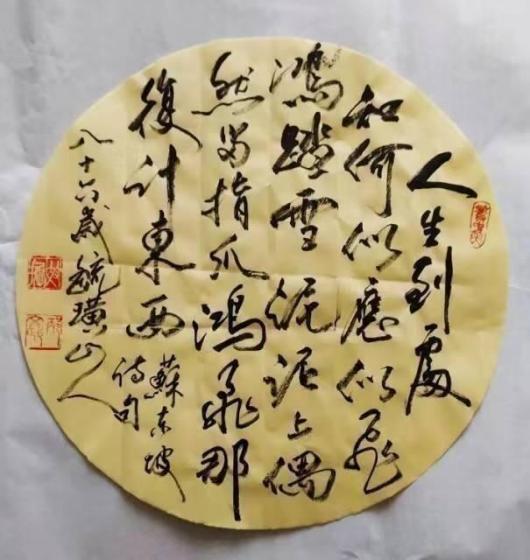 人生到處
知何似應似飛
鴻踏雪泥泥上偶
然留指爪鴻飛那
復計東西
蘇東坡
詩句
八十六歲毓璜山人